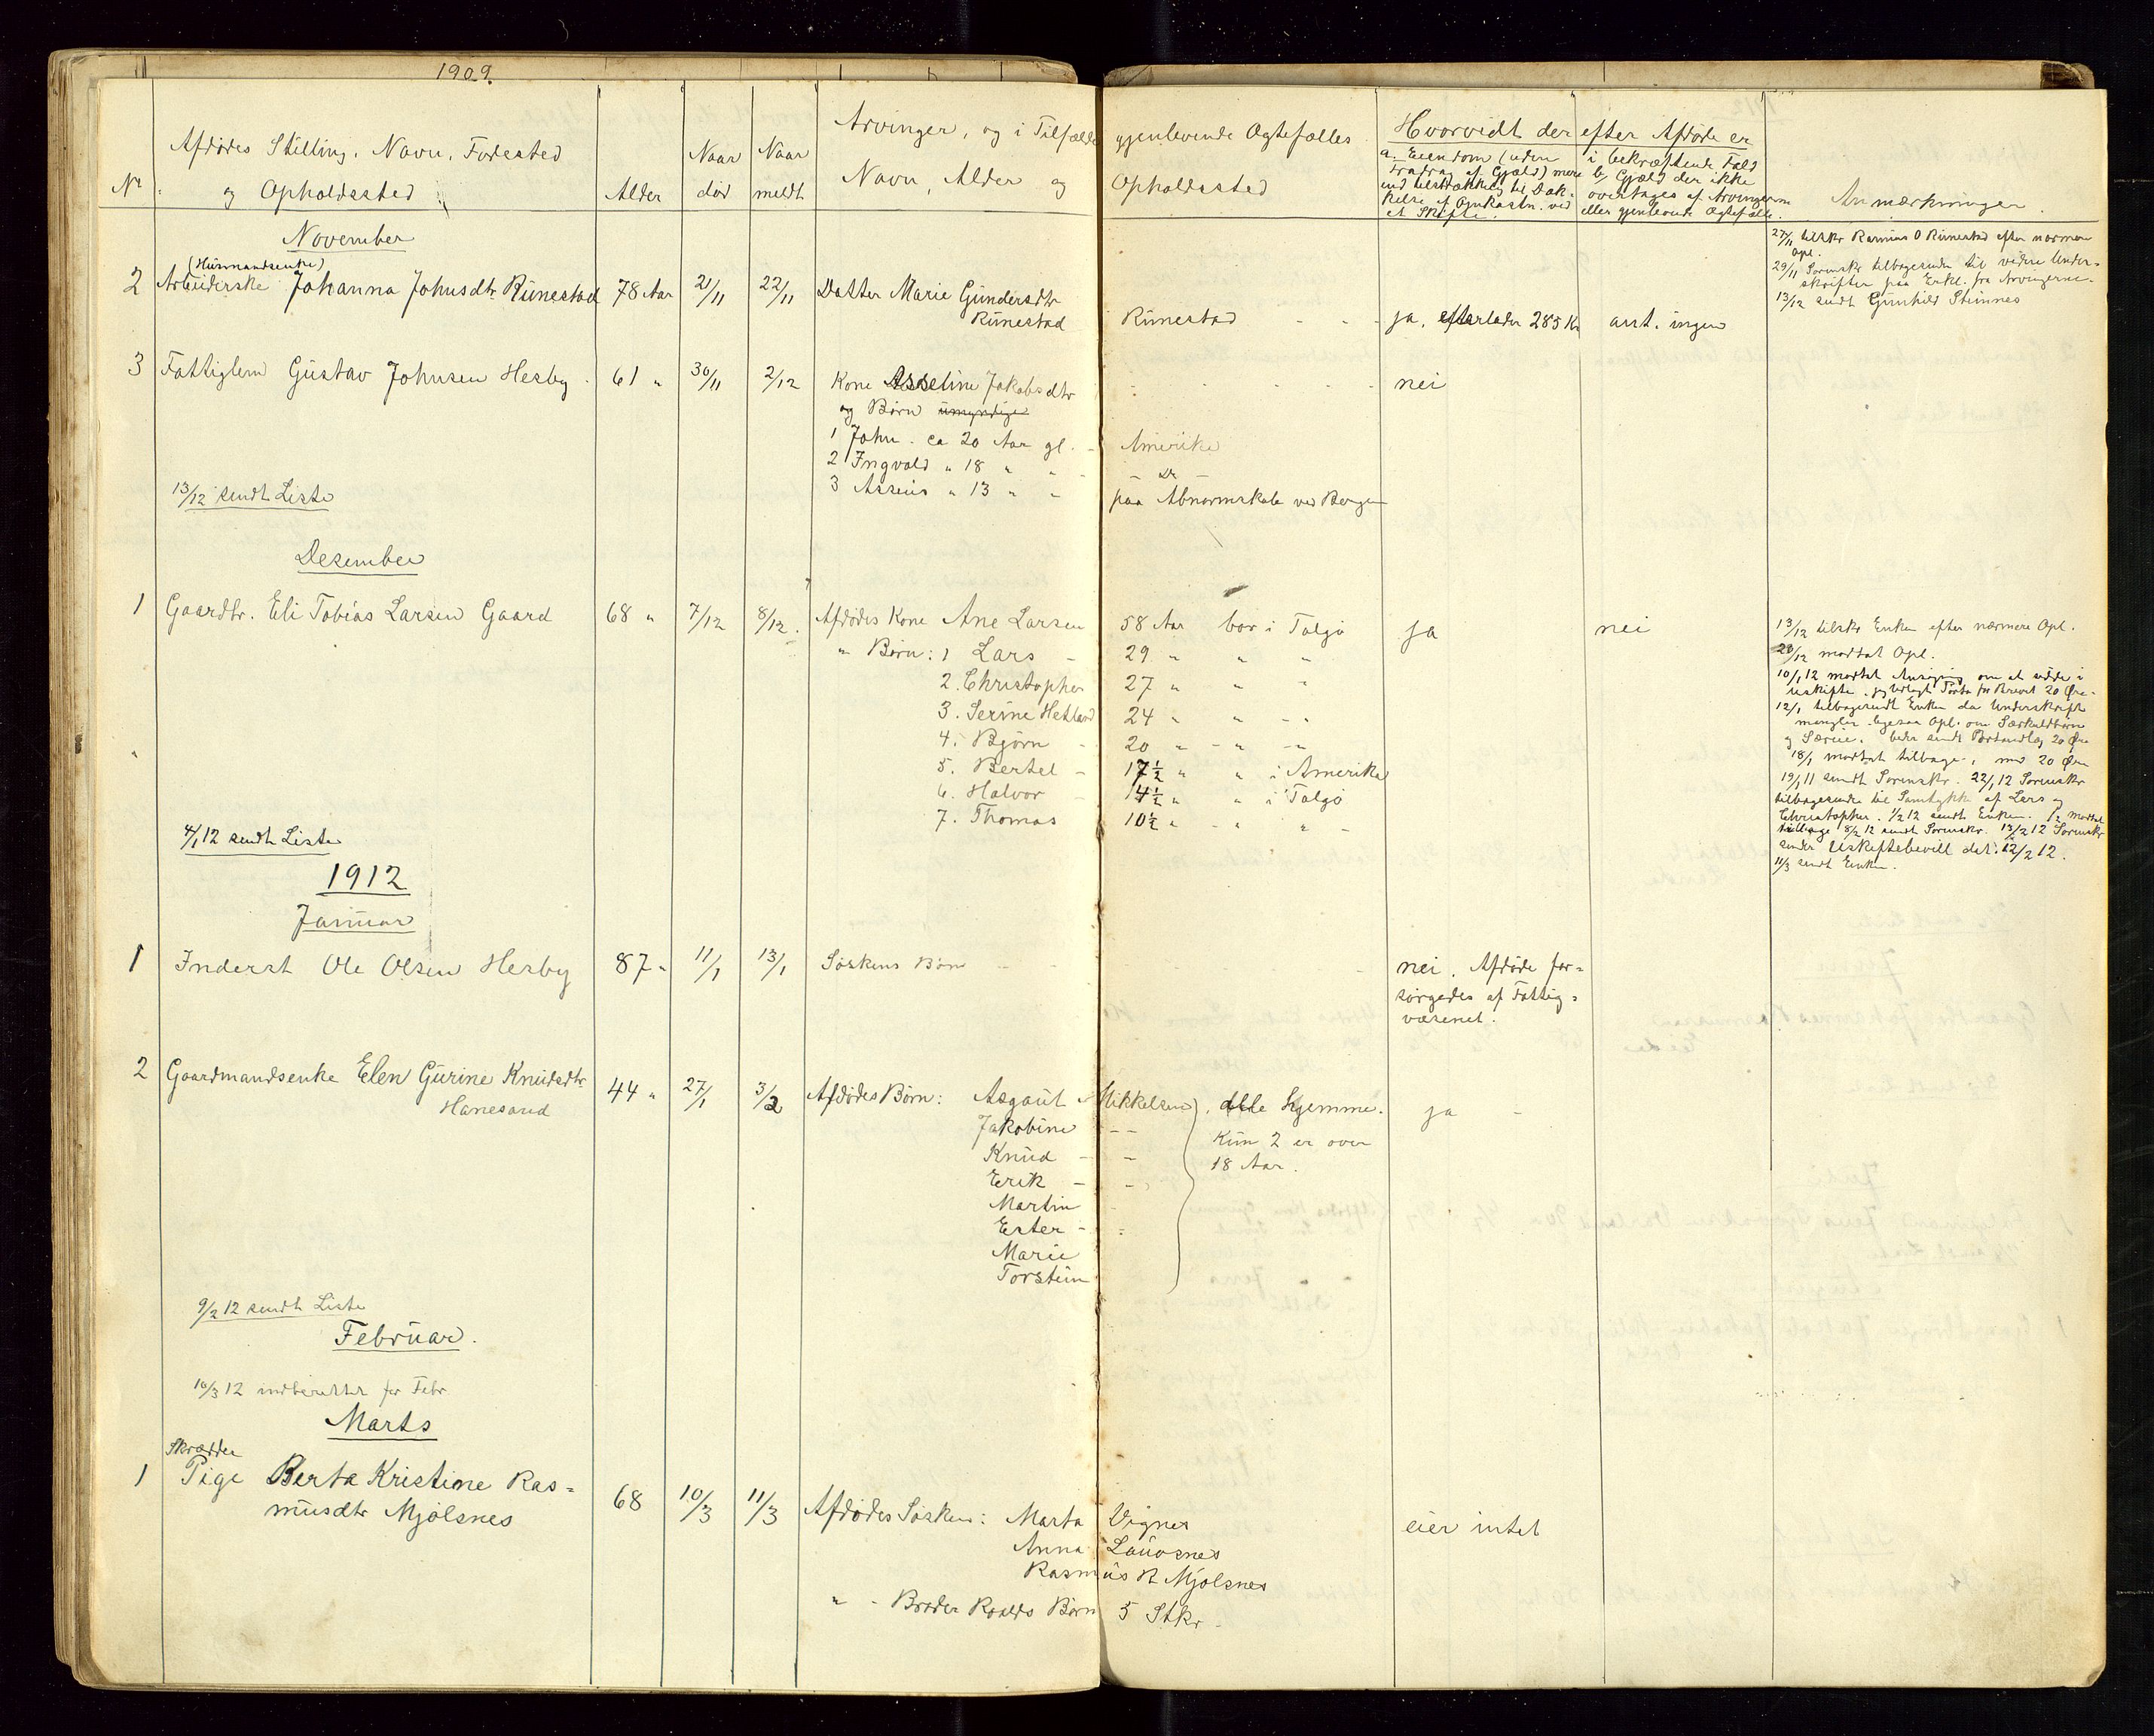 1909.
Afdødes Stilling, Navn, Fødested
og Opholdssted
Nr
Alder
Naar
død
Naar
meldt
Arvinger, og i Tilfælde gjenlevende Ægtefælles
Navn, Alder og Opholdssted
Hvorvidt der efter Afdøde er
a. Eiendom (uden
fradrag af Gjæld) mere
end tilstrækkelig til Dæk-
kelse af Omkostn. ved
et Skifte.
i bekræftende Fald
b, Gjæld der ikke
overtages af Arvingerne
eller gjenlevende Ægtefælle.
Anmærkninger.
November
(Husmandsenke)
2 Arbeiderske Johanna Johnsdtr Rünestad 78 Aar 21/11 22/11 Datter Marie Gündersdtr
Rünestad Rünestad - - - ja, efterlader 285 Kr ant. ingen
27/11 tilskr Rasmus O Rünestad efter nærmere
Opl.
29/11 Sorenskr tilbagesender til videre Under-
skrifter paa Erkl. fra Arvingerne.
13/12 sendt Gunhild Steinnes
3 Fattiglem Güstav Johnsen Hesby. 61 " 30/11 2/12 Kone Asseline Jakobsdtr - - - - - nei
og Børn ümyndige
1 John. ca 20 Aar gl. - Amerika
2 Ingvald " 18 " " - - Do -
3 Asseüs " 13 " " paa Abnormskole ved Bergen
13/12 sendt Liste
Desember
1 Gaardbr. Eli Tobias Larsen Gaard 68 " 7/12 8/12. Afdødes Kone Ane Larsen 58 Aar bor i Talgø ja nei
" Børn: 1 Lars - 29 " " "
2. Christopher 27 " " "
3. Serine Hetland 24 " " - "
4. Bjørn - 20 " - " - "
5. Bertel - 17½ " " i Amerika
6. Halvor - 14½ " " i Talgø
7. Thomas 10½ " - " " -
13/12 tilskr Enken efter nærmere Opl.
28/12 modtat Opl.
10/1 12 modtat Ansøgning om at sidde i
uskifte. jeg udlagt Porto for Brevet 20 Øre.
12/1 tilbagesendt Enken da Underskrift
mangler. ligesaa Opl. om Særkuldbørn
og Særeie. beder sendt Portoudlæg 20 Øre
18/1 modtat tilbage, med 20 Øre
19/1 11 sendt Sorenskr. 22/1 12 Sorenskr
tilbagesender til Samtykk af Lars og
Christopher. 1/2 12 sendt Enken. modtat
tilbage 8/2 12 sendt Sorenskr. 13/2 12 Sorenskr
sender Uskiftebevill dat. 12/2 12.
11/3 sendt Enken.
4/1 12 sendt Liste
1912
Janüar
1 Inderst Ole Olsen Hesby 87 " 11/1 13/1 Søskens Børn - - nei. Afdøde for-
sørgedes af Fattig-
væsenet.
2 Gaardmandsenke Elen Gürine Knüdsdtr
Hanesand 44 " 27/1 3/2 Afdødes Børn: Asgaüt Mikkelsen, alle hjemme. ja -
Jakobine - - Kün 2 er over
Knüd - - 18 Aar.
Erik - -
Martin -
Ester - "
Marie
Torstein
9/2 12 sendt Liste
Febrüar.
10/3 12 indberettet for Febr
Marts
Skrædder
1 Pige Berta Kristine Ras-
müsdtr Mjølsnes 68 10/3 11/3 Afdødes Søsken: Marta Vignes eier intet
Anna Laüvsnes
Rasmüs R Mjølsnes
" - Broder Roalds Børn 5 Stkr -